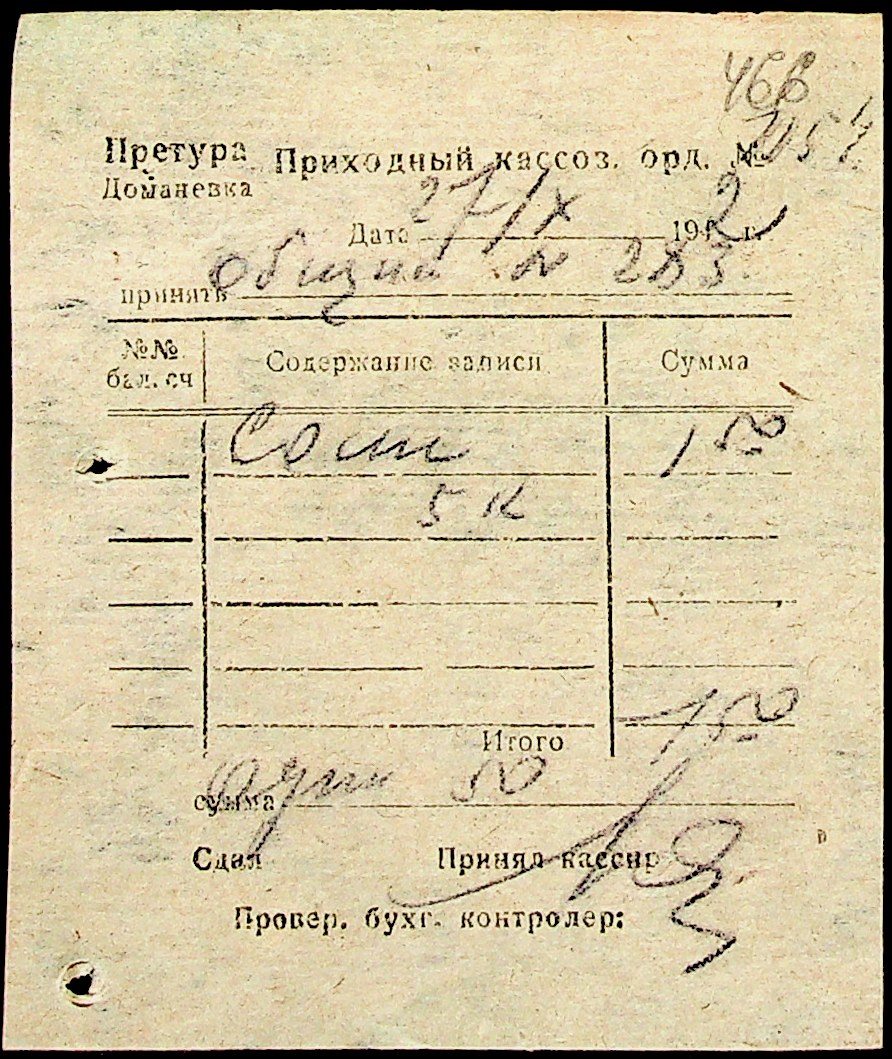 466
Претура Приходный кассоз. орд. №
Доманевка
Дата 27/IX 1942 г.
принять Общий № 283
№№ бал. сч Содержание записи Сумма
Соли 1 50
5 к
Итого 1 50
сумма Один 50
Сдал Принял кассир
Провер. бухг. контролер: